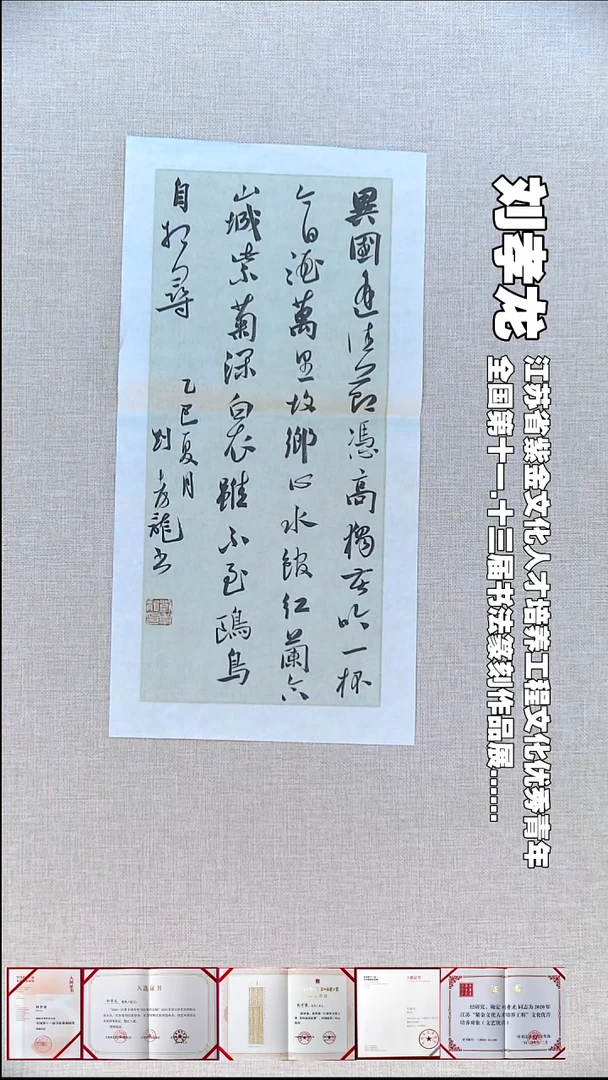 刘孝龙
江苏省紫金文化人才培养工程文化优秀青年
全国第十一.十三届书法篆刻作品展......
異國逢佳節憑高獨苦吟一杯
今日酒萬里故鄉心水館紅蘭合
山城紫菊深白衣雖不至鷗鳥
自相尋
乙巳夏月
劉孝龍書
入选证书
入选证书
入选证书
证书
经研究，确定刘孝龙同志为2020年
江苏“紫金文化人才培养工程”文化优青
培养对象（文艺优青）